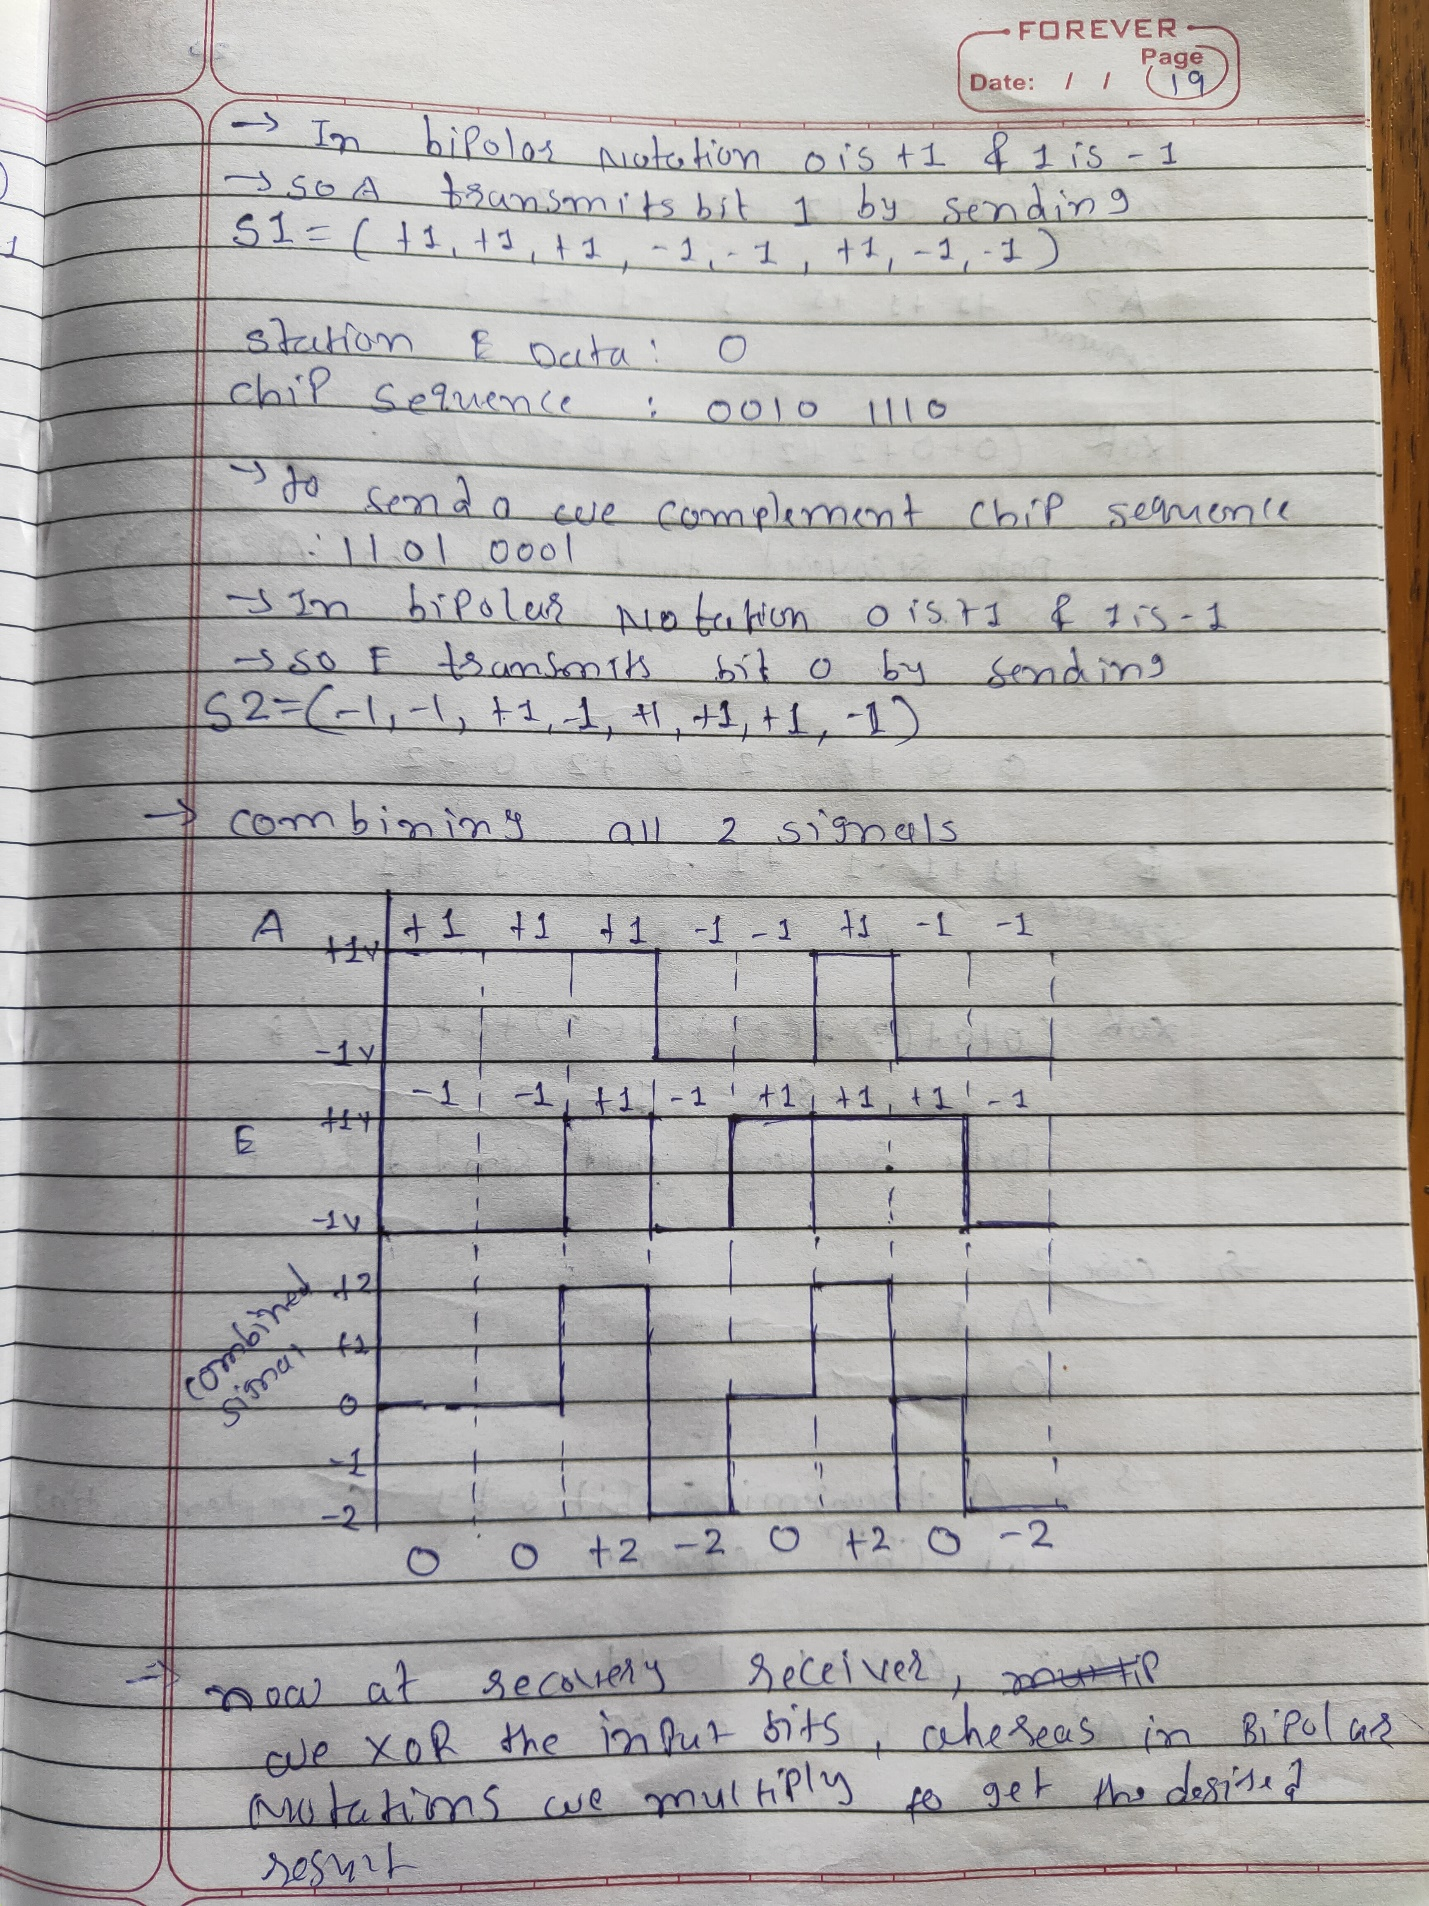 FOREVER
Page
Date: / / 19
→ In bipolar Notation 0 is +1 & 1 is -1
→ so A transmits bit 1 by sending
S1 = ( +1, +1, +1, -1, -1, +1, -1, -1 )
station E Data : 0
chip sequence : 0010 1110
→ to send 0 we complement chip sequence
: 1101 0001
→ In bipolar Notation 0 is +1 & 1 is -1
→ so E transmits bit 0 by sending
S2 = ( -1, -1, +1, -1, +1, +1, +1, -1 )
→ combining all 2 signals
A +1 +1 +1 -1 -1 +1 -1 -1
+1v
-1v
-1 -1 +1 -1 +1 +1 +1 -1
+1v
E
-1v
combined signal
+2
+1
0
-1
-2
0 0 +2 -2 0 +2 0 -2
→ now at recovery receiver,
we XOR the input bits, whereas in Bipolar
Notations we multiply to get the desired
result